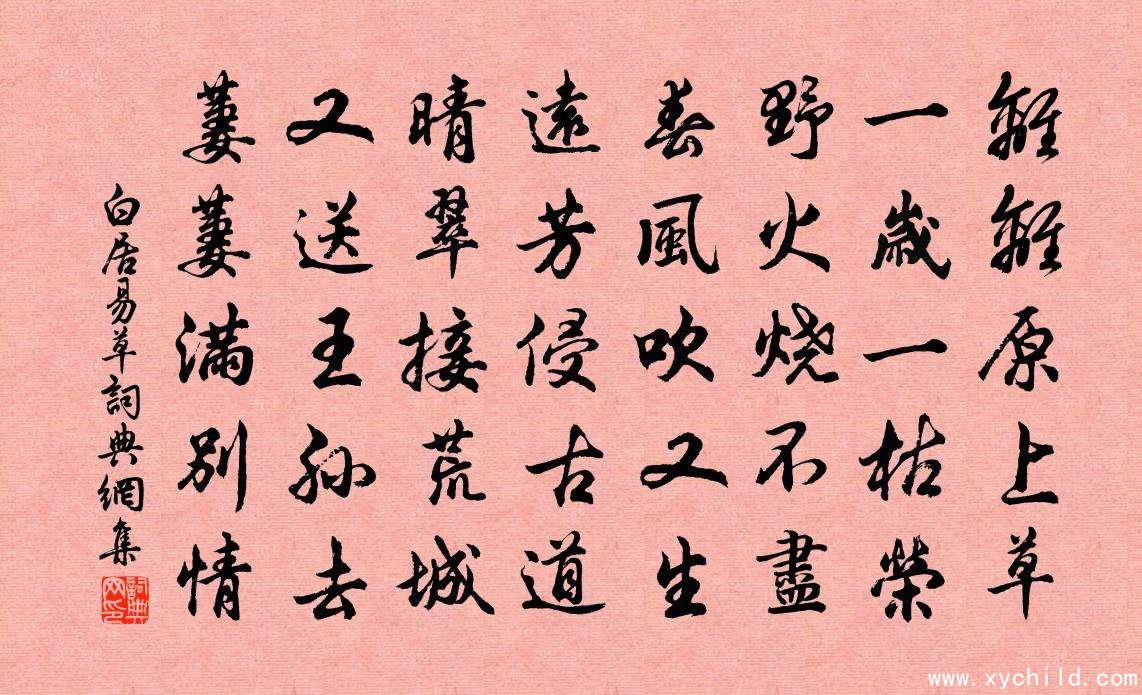 離離原上草
一歲一枯榮
野火燒不盡
春風吹又生
遠芳侵古道
晴翠接荒城
又送王孫去
萋萋滿別情
白居易草詞典網集
詞典網印
www.xychild.com